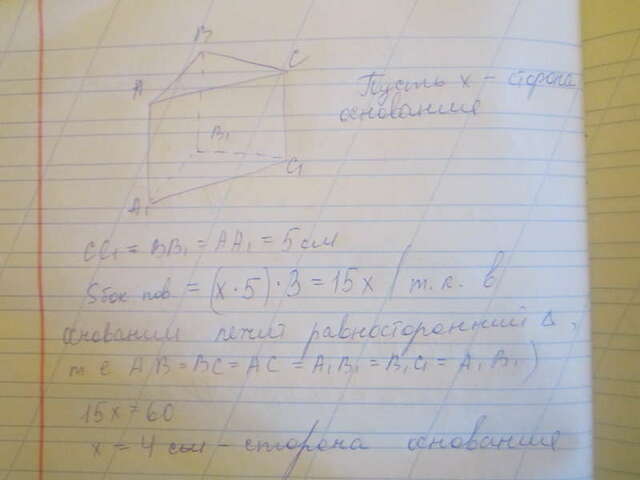 B
C
A
Пусть x - сторона
основания
B₁
C₁
A₁
CC₁ = BB₁ = AA₁ = 5 см
Sбок пов. = (x · 5) · 3 = 15x (т.к. в
основании лежит равносторонний Δ,
т е AB = BC = AC = A₁B₁ = B₁C₁ = A₁B₁)
15x = 60
x = 4 см - сторона основания